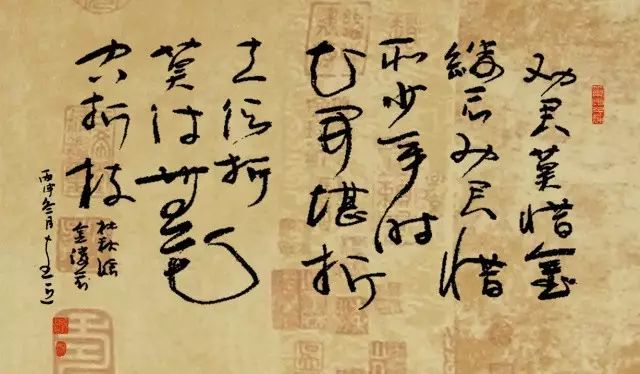 劝君莫惜金
缕衣劝君惜
取少年时
花開堪折
直须折
莫待無花
空折枝
杜秋娘
金缕衣
丙申冬月